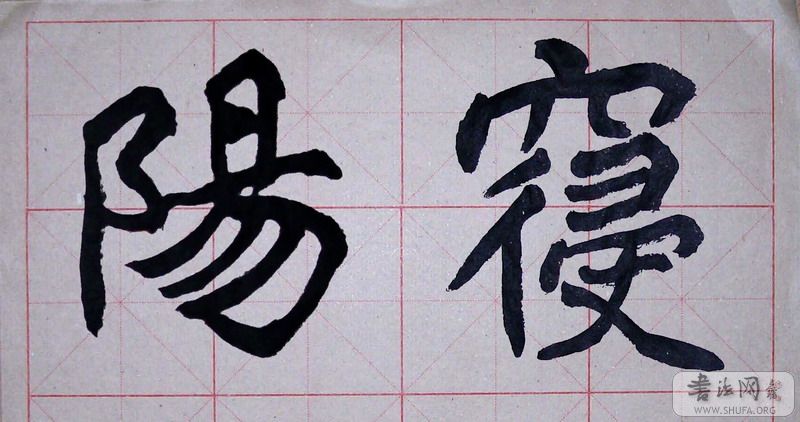 寢陽
書法网
WWW.SHUFA.ORG